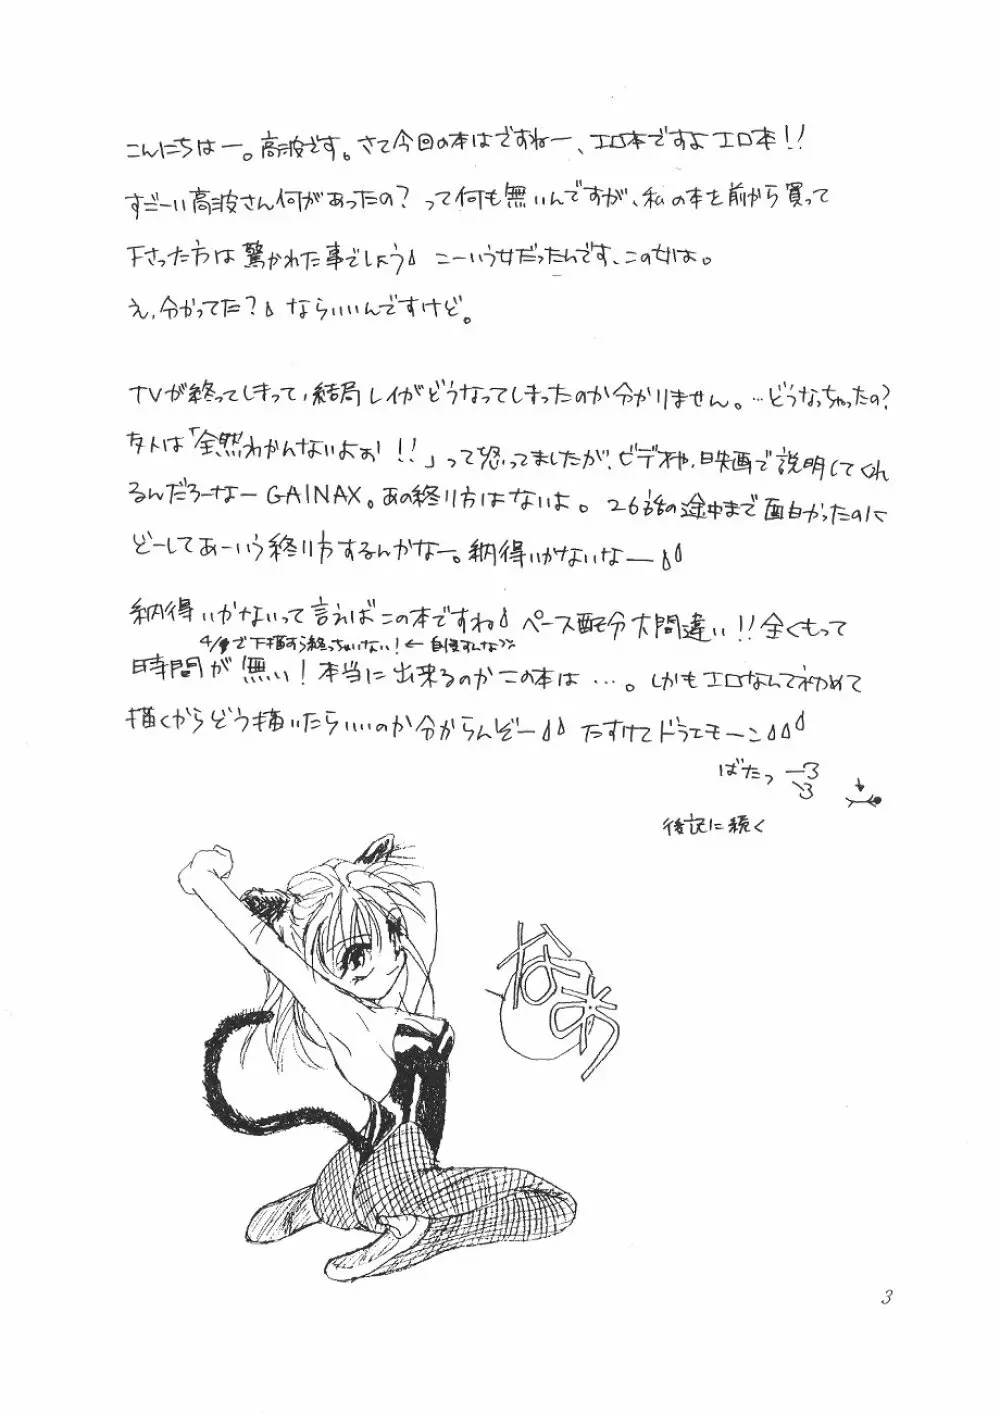 こんにちはー。高波です。さて今回の本はですねー、エロ本ですよエロ本!!
すごーい高波さん何があったの？って何も無いんですが、私の本を前から買って
下さった方は驚かれた事でしょう こーいう女だったんです、この女は。
え、分かってた？ ならいいんですけど。
TVが終ってしまって、結局レイがどうなってしまったのか分かりません。…どうなっちゃったの？
友人は「全然わかんないよぉ!!」って怒ってましたが、ビデオや、映画で説明してくれ
るんだろーなー GAINAX。あの終り方はないよ。26話の途中まで面白かったのに
どーしてあーいう終り方するんかなー。納得いかないなー
納得いかないって言えばこの本ですね ペース配分大間違い!!全くもって
4/ で下描すら終っちゃいない!← 自慢すんな
時間が無い!本当に出来るのかこの本は…。しかもエロなんて初めて
描くからどう描いたらいいのか分からんぞー たすけてドラエモーン
ばたっ
後記に続く
なあ
3